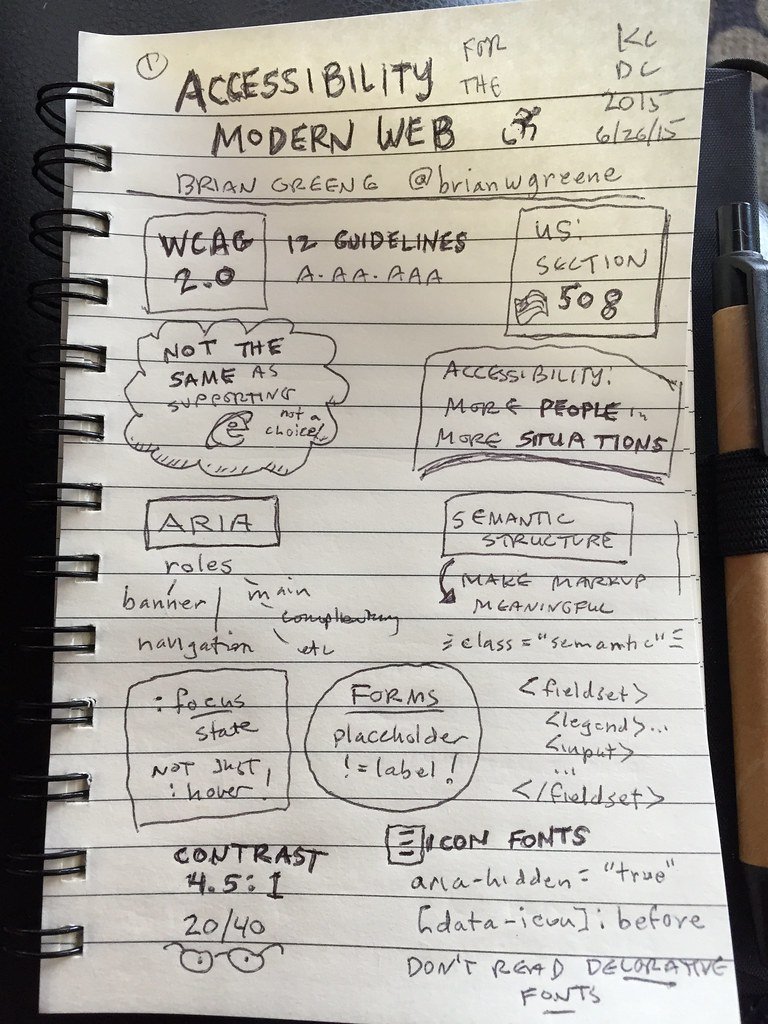 1
ACCESSIBILITY FOR THE
MODERN WEB
KC
DC
2015
6/26/15
BRIAN GREENE @brianwgreene
WCAG
2.0
12 GUIDELINES
A. AA. AAA
US:
SECTION
508
NOT THE
SAME AS
SUPPORTING
e not a
choice!
ACCESSIBILITY:
MORE PEOPLE in
MORE SITUATIONS
ARIA
roles
banner
main
navigation
etc
SEMANTIC
STRUCTURE
MAKE MARKUP
MEANINGFUL
class="semantic"
:focus
state
NOT JUST
:hover!
FORMS
placeholder
!=label!
<fieldset>
<legend>...
<input>
...
</fieldset>
CONTRAST
4.5:1
20/40
ICON FONTS
aria-hidden="true"
[data-icon]:before
DON'T READ DECORATIVE
FONTS